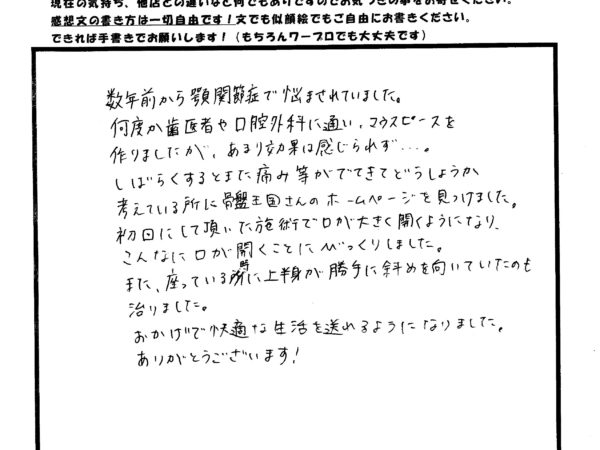 現在の気持ち、他店との違いなど何でもありですのでお気づきの事をお寄せください。
感想文の書き方は一切自由です！文でも似顔絵でもご自由にお書きください。
できれば手書きでお願いします！（もちろんワープロでも大丈夫です）
数年前から顎関節症で悩まされていました。
何度か歯医者や口腔外科に通い、マウスピースを
作りましたが、あまり効果は感じられず…。
しばらくするとまた痛み等がでてきてどうしようか
考えている所に骨盤王国さんのホームページを見つけました。
初回にして頂いた施術で口が大きく開くようになり、
こんなに口が開くことにびっくりしました。
また、座っている時に上半身が勝手に斜めを向いていたのも
治りました。
おかげで快適な生活を送れるようになりました。
ありがとうございます！